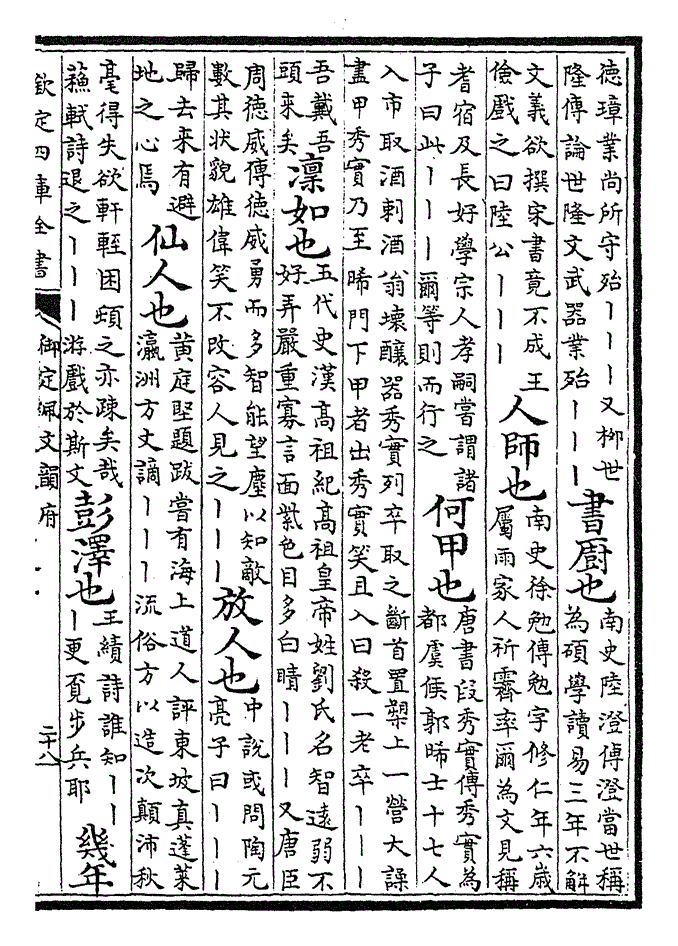 德璋業尚所守殆丨丨丨又柳世
隆傳論世隆文武器業殆丨丨丨
書廚也
南史陸澄傳澄當世稱
為碩學讀易三年不解
文義欲撰宋書竟不成王
儉戲之曰陸公丨丨丨
人師也
南史徐勉傳勉字修仁年六歲
屬雨家人祈霽率爾為文見稱
耆宿及長好學宗人孝嗣嘗謂諸
子曰此丨丨丨爾等則而行之
何甲也
唐書段秀實傳秀實為
都虞候郭晞士十七人
入市取酒刺酒翁壞釀器秀實列卒取之斷首置槊上一營大譟
盡甲秀實乃至晞門下甲者出秀實笑且入曰殺一老卒丨丨丨
吾戴吾
頭來矣
凛如也
五代史漢高祖紀高祖皇帝姓劉氏名智遠弱不
好弄嚴重寡言面紫色目多白睛丨丨丨又唐臣
周德威傳德威勇而多智能望塵以知敵
數其狀貌雄偉笑不改容人見之丨丨丨
放人也
中說或問陶元
亮子曰丨丨丨
歸去来有避
地之心焉
仙人也
黄庭堅題跋嘗有海上道人評東坡真蓬萊
瀛洲方丈謫丨丨丨流俗方以造次顛沛秋
毫得失欲軒輊困頓之亦疎矣哉
蘓軾詩退之丨丨丨游戲於斯文
彭澤也
王績詩誰知丨丨
丨更覓步兵耶
幾年
欽定四庫全書
御定佩文韻府
二十八